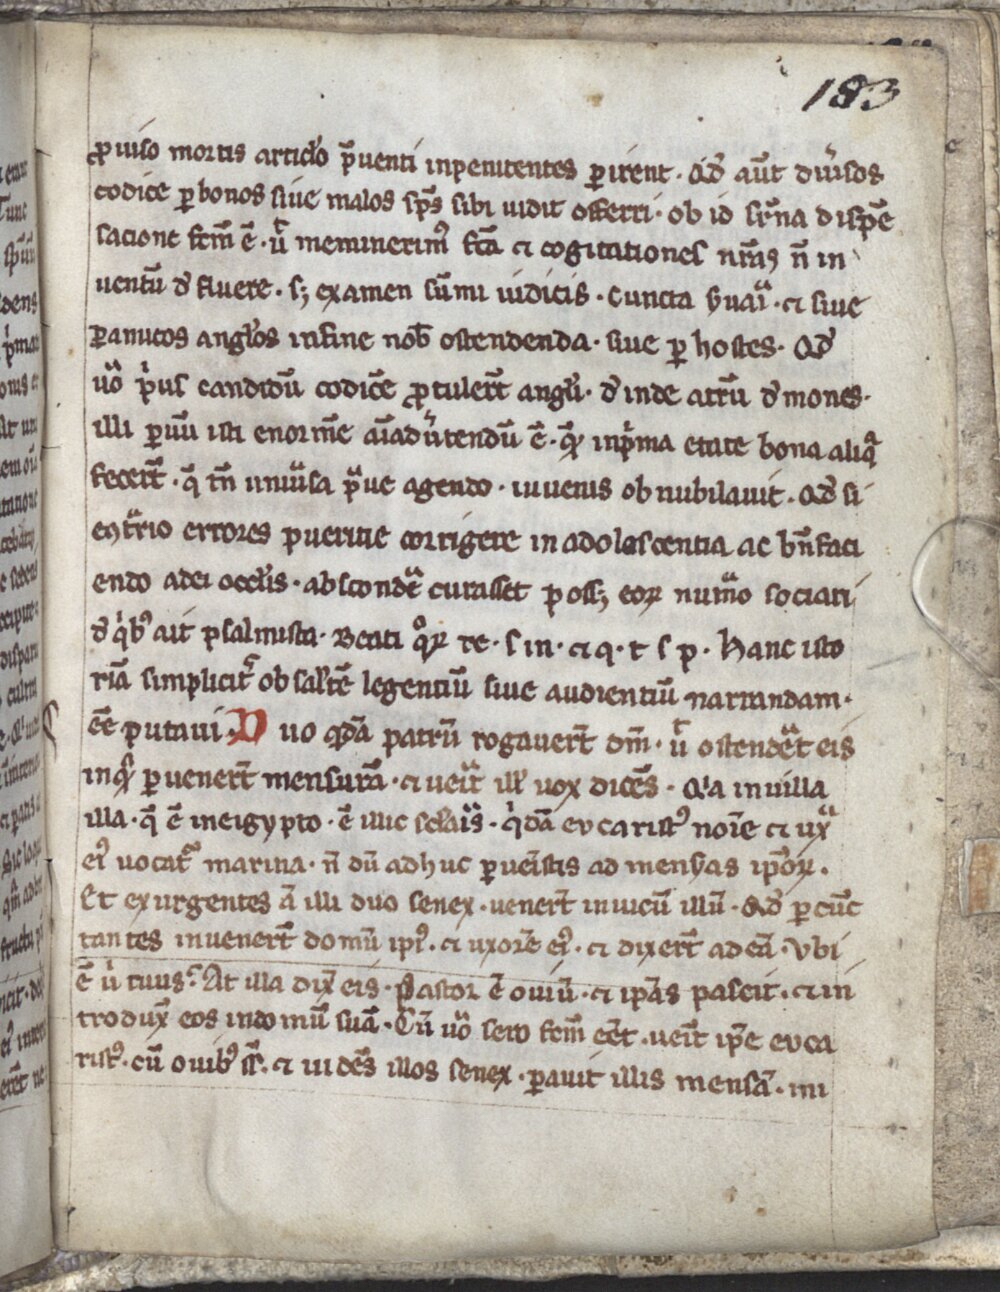 183
ꝓuiso mortis articl'o p̄uenti inpenitentes ꝑirent · Qđ aūt diu'sos
codice ꝑ bonos siue malos sp̄s sibi uidit offerri · ob id sr̄na dispē
sacione fcm̄ ē · ut meminerim' fc̄a ⁊ cogitationes nr̄as n̄ in
uentū đ fluere · sꝫ examen sūmi iudicis · Cuncta ỻuari · ⁊ siue
ꝑ amicos angl'os infine nob̄ ostendenda · siue ꝑ hostes · Qđ
u̓o p̓us candidū codicē ꝓtulert̄ angl'i · đ inde atrū đmones ·
illi ꝑuū isti enormē aīadu'tendū ē · qꝫ inp̓ma etate bona aliq̄
fecert̄ · q̄ tn̄ uniu'sa p̄ue agendo · iuuenis obnubilauit · Qđ si
eↄtrio errores puericie corrigere in adolescentia ac bn̄faci
endo a dei occl'is · abscondē curasset possꝫ eoꝝ num̓o sociari
đ q̓b' ait psalmista · Beati qꝝ re · s in · ⁊ q · t s p · Hanc isto
riā simplicit̄ ob salt̄ē legentiū siue audientiū narrandam ·
eē putaui · Duo qdā patrū rogauert̄ dm̄ · ut ostendet̄ eis
in qꝫ ꝑuenert̄ mensurā · ⁊ ueīt ill' uox dicēs · Q'a inuilla
illa · q̄ ē in eigypto · ē illic sclaris · q̓dā eucarist' noīe ⁊ ux̄
ei' uocat̄ marina · n̄ dū adhuc ꝑueīstis ad mensas ip̄oꝝ ·
Et exurgentes ā illi duo senex · uenert̄ inuicū illū · Qđ ꝑcūc
tantes inuenert̄ domū ipi' · ⁊ uxorē ei' · ⁊ dixert̄ ad eā · Vbi
ē u̓ tuus · At illa dix̄ eis · Pastor ē ouiū · ⁊ ip̄as pascit · ⁊ in
trodux̄ eos in domū suā · Cū u̓o sero fcm̄ eēt · ueīt ip̄e euca
rist' · cū ouib' s̄s · ⁊ uidēs illos senex · ꝑauit illis mensā · mi